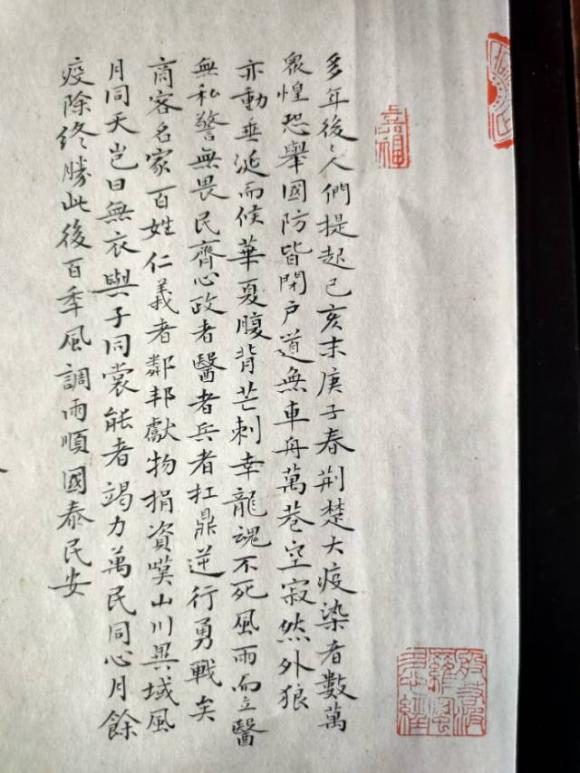 多年後人們提起己亥末庚子春荆楚大疫染者數萬
衆惶恐舉國防皆閉户道無車舟萬巷空寂然外狼
亦動垂涎而候華夏腹背芒刺幸龍魂不死風雨而立醫
無私警無畏民齊心政者醫者兵者扛鼎逆行勇戰矣
商客名家百姓仁義者鄰邦獻物捐資嘆山川異域風
月同天岂曰無衣與子同裳能者竭力萬民同心月餘
疫除終勝此後百年風調雨順國泰民安